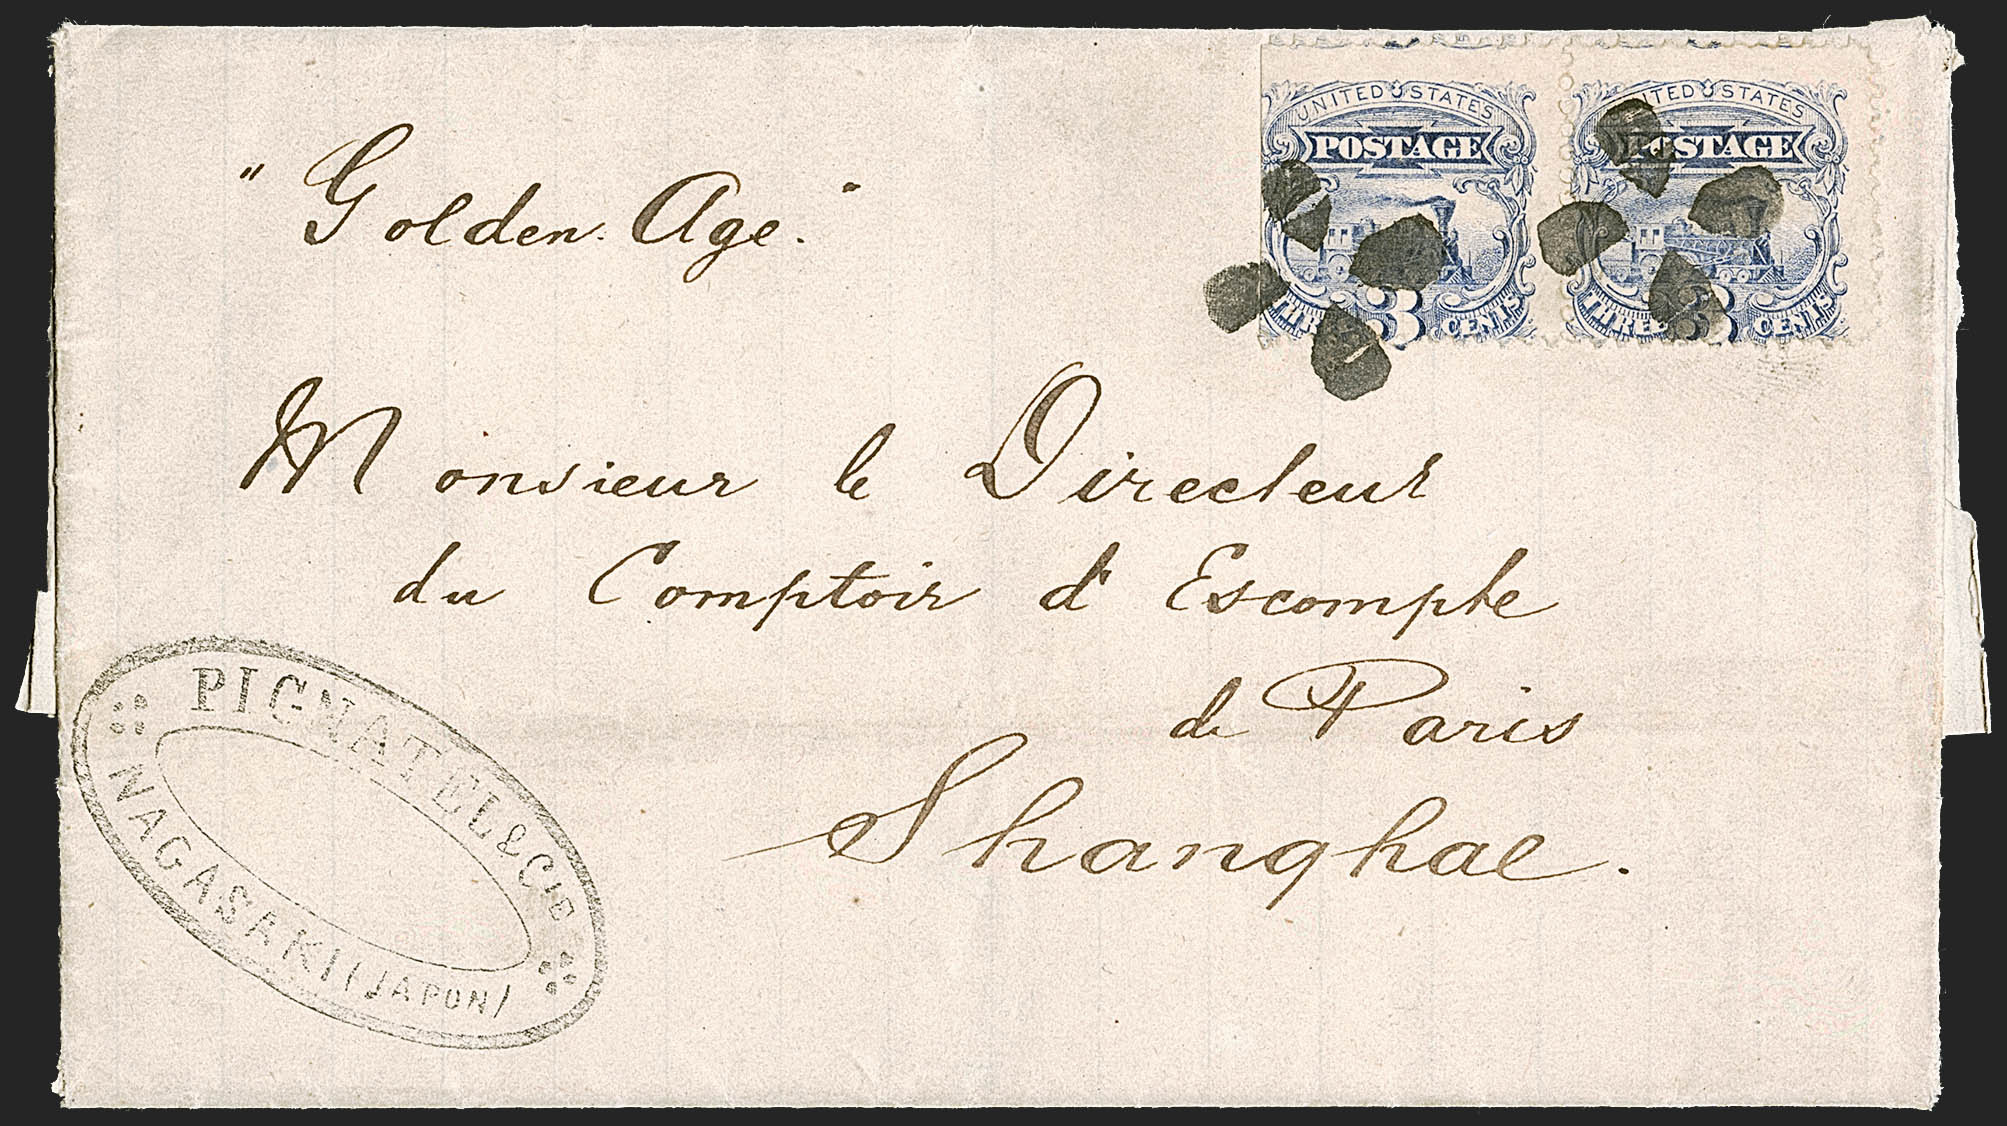 " Golden Age. "
UNITED STATES
POSTAGE
3
THREE CENTS
UNITED STATES
POSTAGE
3
THREE CENTS
Monsieur le Directeur
du Comptoir d'Escompte
de Paris
Shanghae.
PIGNATEL & CIE
NAGASAKI (JAPON)